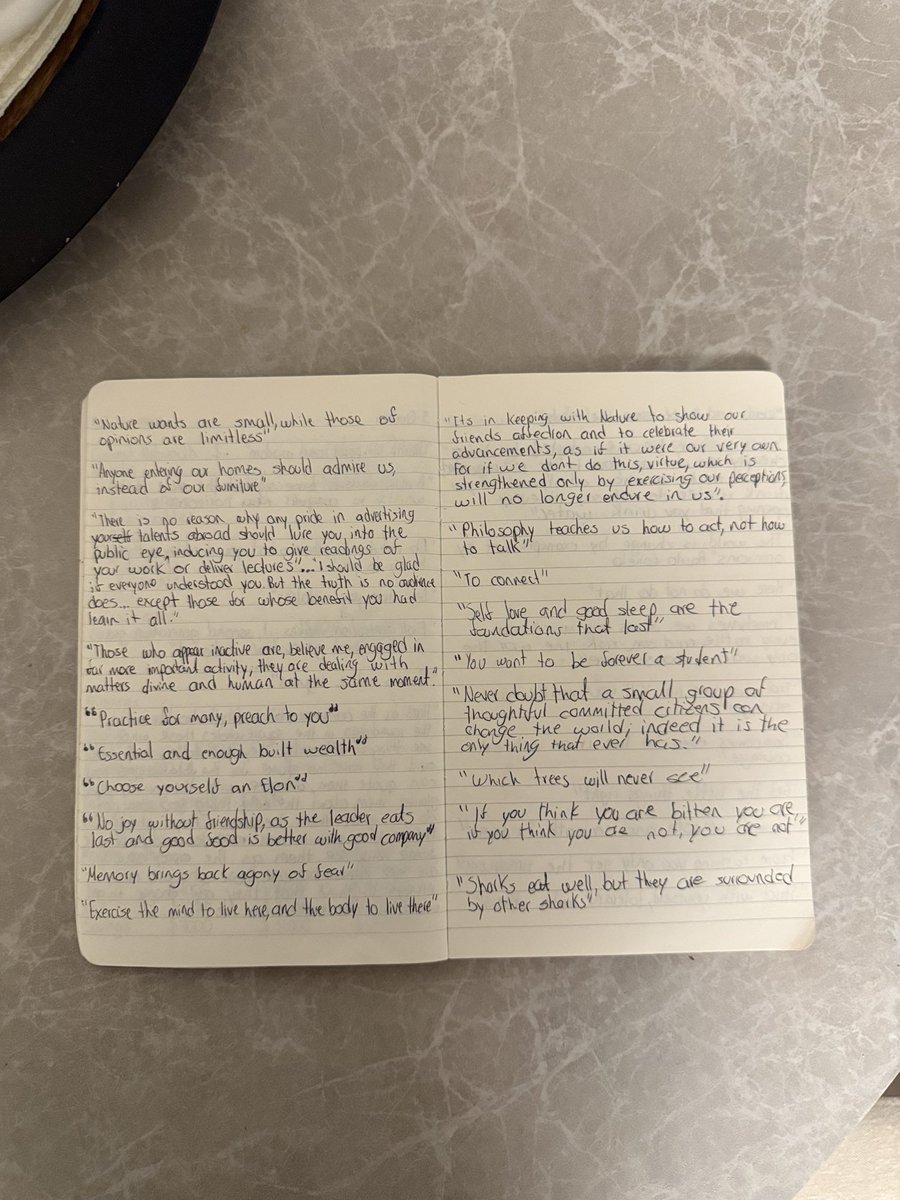 "Nature wants are small, while those of
opinions are limitless"
"Anyone entering our homes should admire us,
instead of our furniture"
"There is no reason why any pride in advertising
yourself talents abroad should lure you into the
public eye, inducing you to give readings of
your work or deliver lectures"... "I should be glad
if everyone understood you. But the truth is no audience
does... except those for whose benefit you had
learn it all."
"Those who appear inactive are, believe me, engaged in
far more important activity, they are dealing with
matters divine and human at the same moment."
"Practice for many, preach to you"
"Essential and enough built wealth"
"Choose yourself an Elon"
"No joy without friendship, as the leader eats
last and good food is better with good company"
"Memory brings back agony of fear"
"Exercise the mind to live here, and the body to live there"
"Its in keeping with Nature to show our
friends affection and to celebrate their
advancements, as if it were our very own.
For if we dont do this, virtue, which is
strengthened only by exercising our perceptions,
will no longer endure in us".
"Philosophy teaches us how to act, not how
to talk"
"To connect"
"Self love and good sleep are the
foundations that last"
"You want to be forever a student"
"Never doubt that a small, group of
thoughtful committed citizens can
change the world; indeed it is the
only thing that ever has."
"Which trees will never see"
"If you think you are bitten you are,
if you think you are not, you are not"
"Sharks eat well, but they are surrounded
by other sharks"